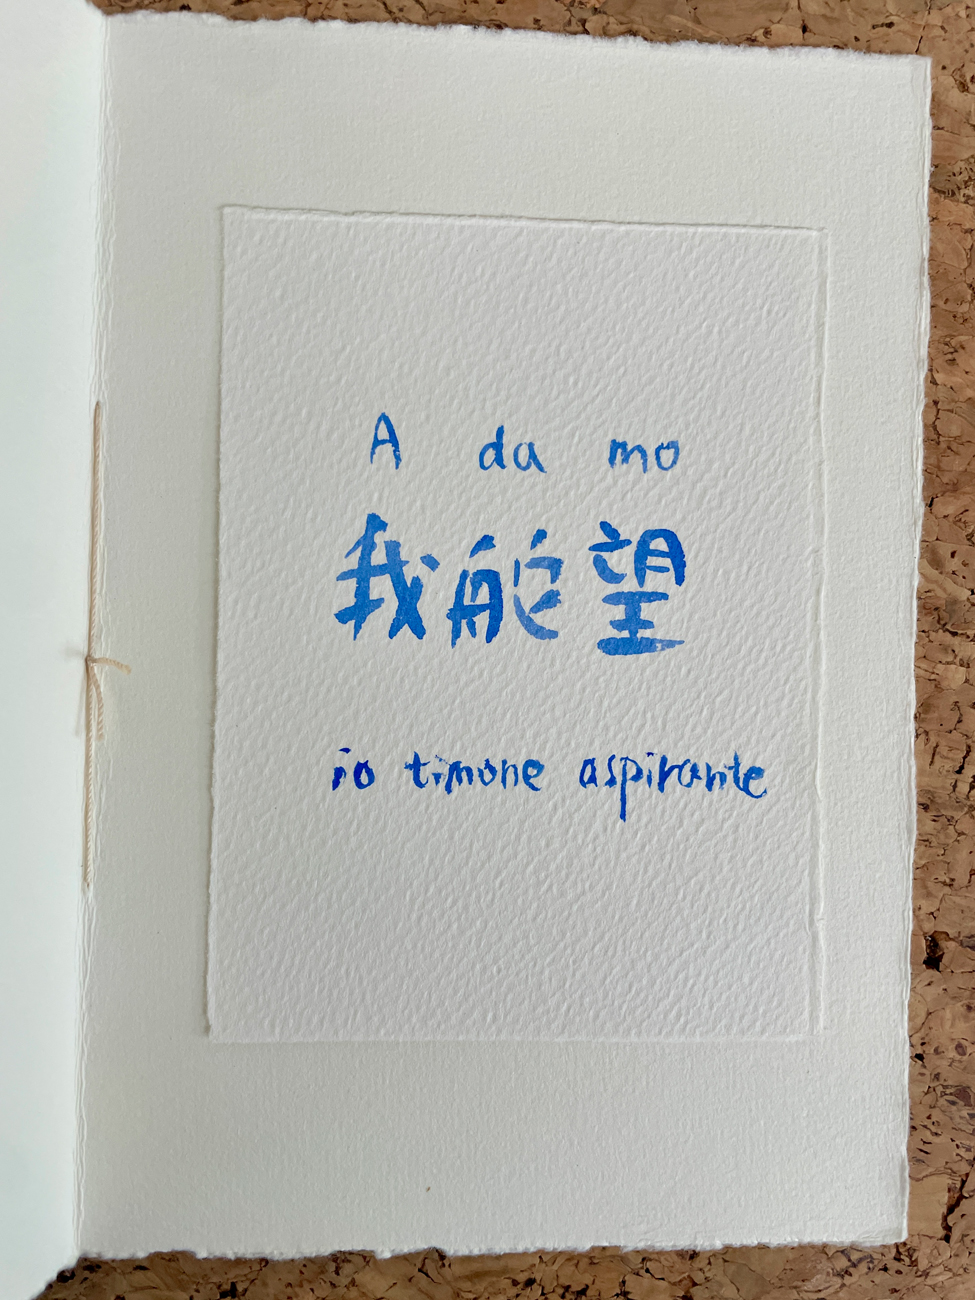 A da mo
我舵望
io timone aspirante